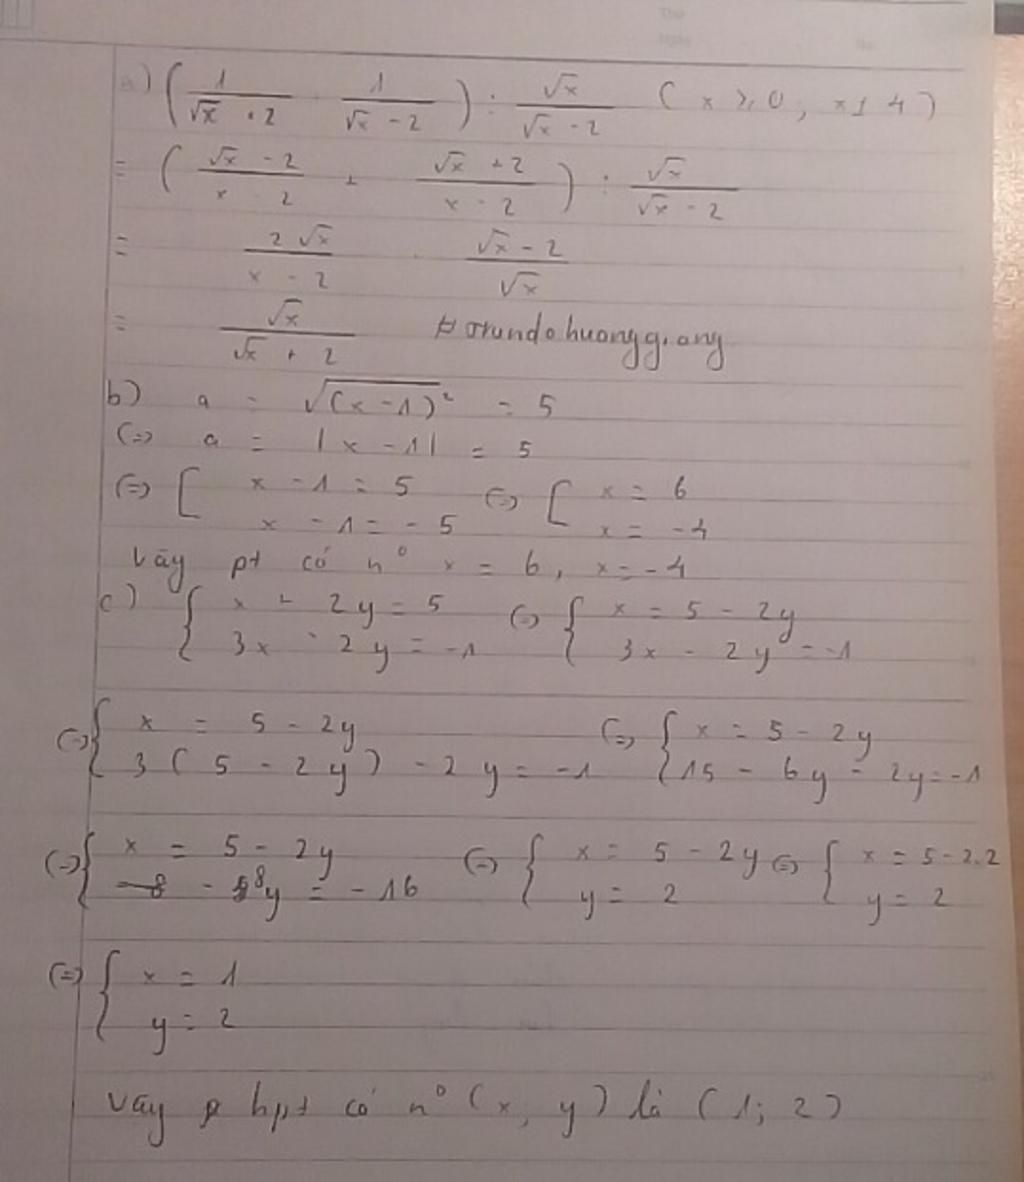 a) ( 1/(√x + 2) 1/(√x - 2) ) : √x/(√x - 2) ( x ≥ 0, x ≠ 4 )
= ( (√x - 2)/(x - 2) + (√x + 2)/(x - 2) ) : √x/(√x - 2)
= 2√x/(x - 2) . (√x - 2)/√x
= √x/(√x + 2) # orundohuonggiang
b) a = √(x - 1)² = 5
(=) a = |x - 1| = 5
(=) [ x - 1 = 5 (=) [ x = 6
x - 1 = - 5 x = -4
Vậy pt có n° x = 6, x = -4
c) { x + 2y = 5 (=) { x = 5 - 2y
3x - 2y = -1 3x - 2y = -1
(=) { x = 5 - 2y (=) { x = 5 - 2y
3 ( 5 - 2y ) - 2y = -1 15 - 6y - 2y = -1
(=) { x = 5 - 2y (=) { x = 5 - 2y (=) { x = 5 - 2.2
- 8y = - 16 y = 2 y = 2
(=) { x = 1
y = 2
Vậy hpt có n° (x, y) là (1; 2)